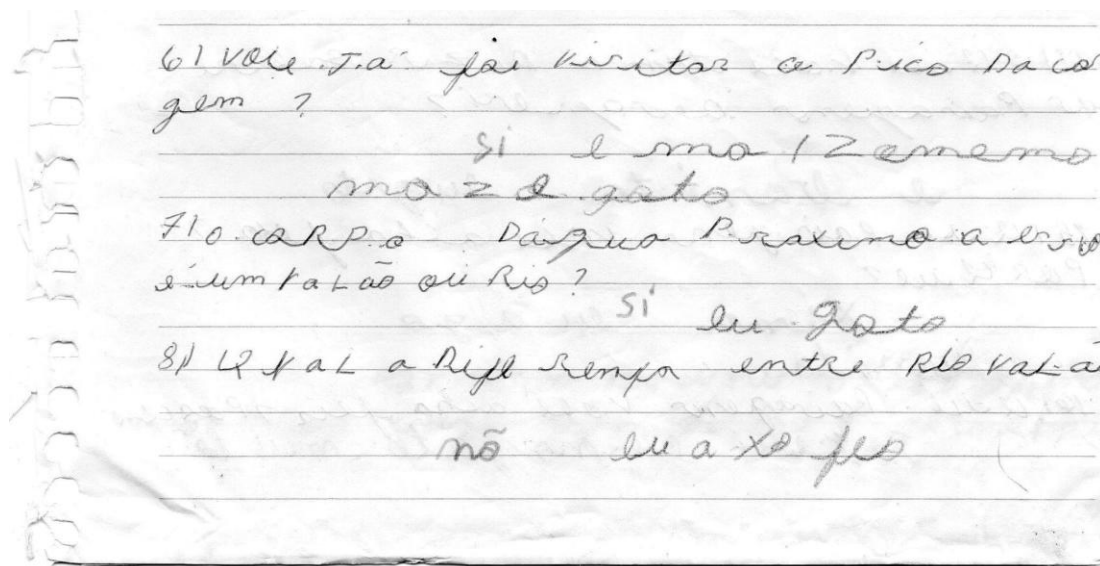 6) você Já foi visitar a Pico Da co
gem ?
Si e mo
mo z e gato
7) o coRPo Dágua Proximo a
é um VaLão ou Rio ?
Si eu gato
8) QVaL a entre Rio VaLã
nõ eu a xo feo